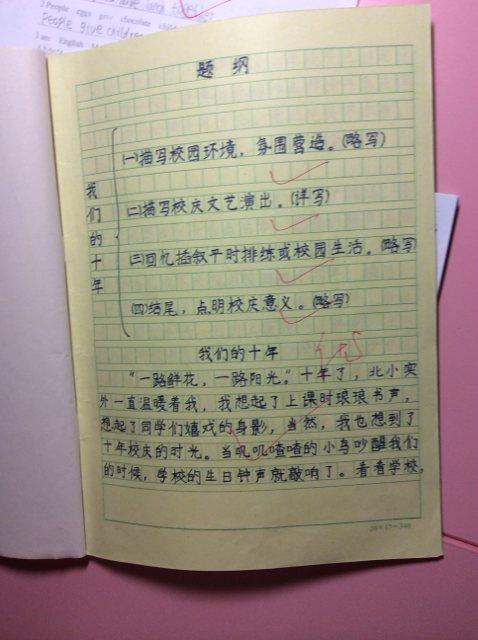 2 People eggs give chocolate
People give children
3 are English
题 纲
我们的十年
(一)描写校园环境，氛围营造。(略写)
(二)描写校庆文艺演出。(详写)
(三)回忆插叙平时排练或校园生活。(略写)
(四)结尾，点明校庆意义。(略写)
我们的十年
“一路鲜花，一路阳光。”十年了，北小实
外一直温暖着我，我想起了上课时琅琅书声，
想起了同学们嬉戏的身影，当然，我也想到了
十年校庆的时光。当叽叽喳喳的小鸟吵醒我们
的时候，学校的生日钟声就敲响了。看看学校，
20×17=340